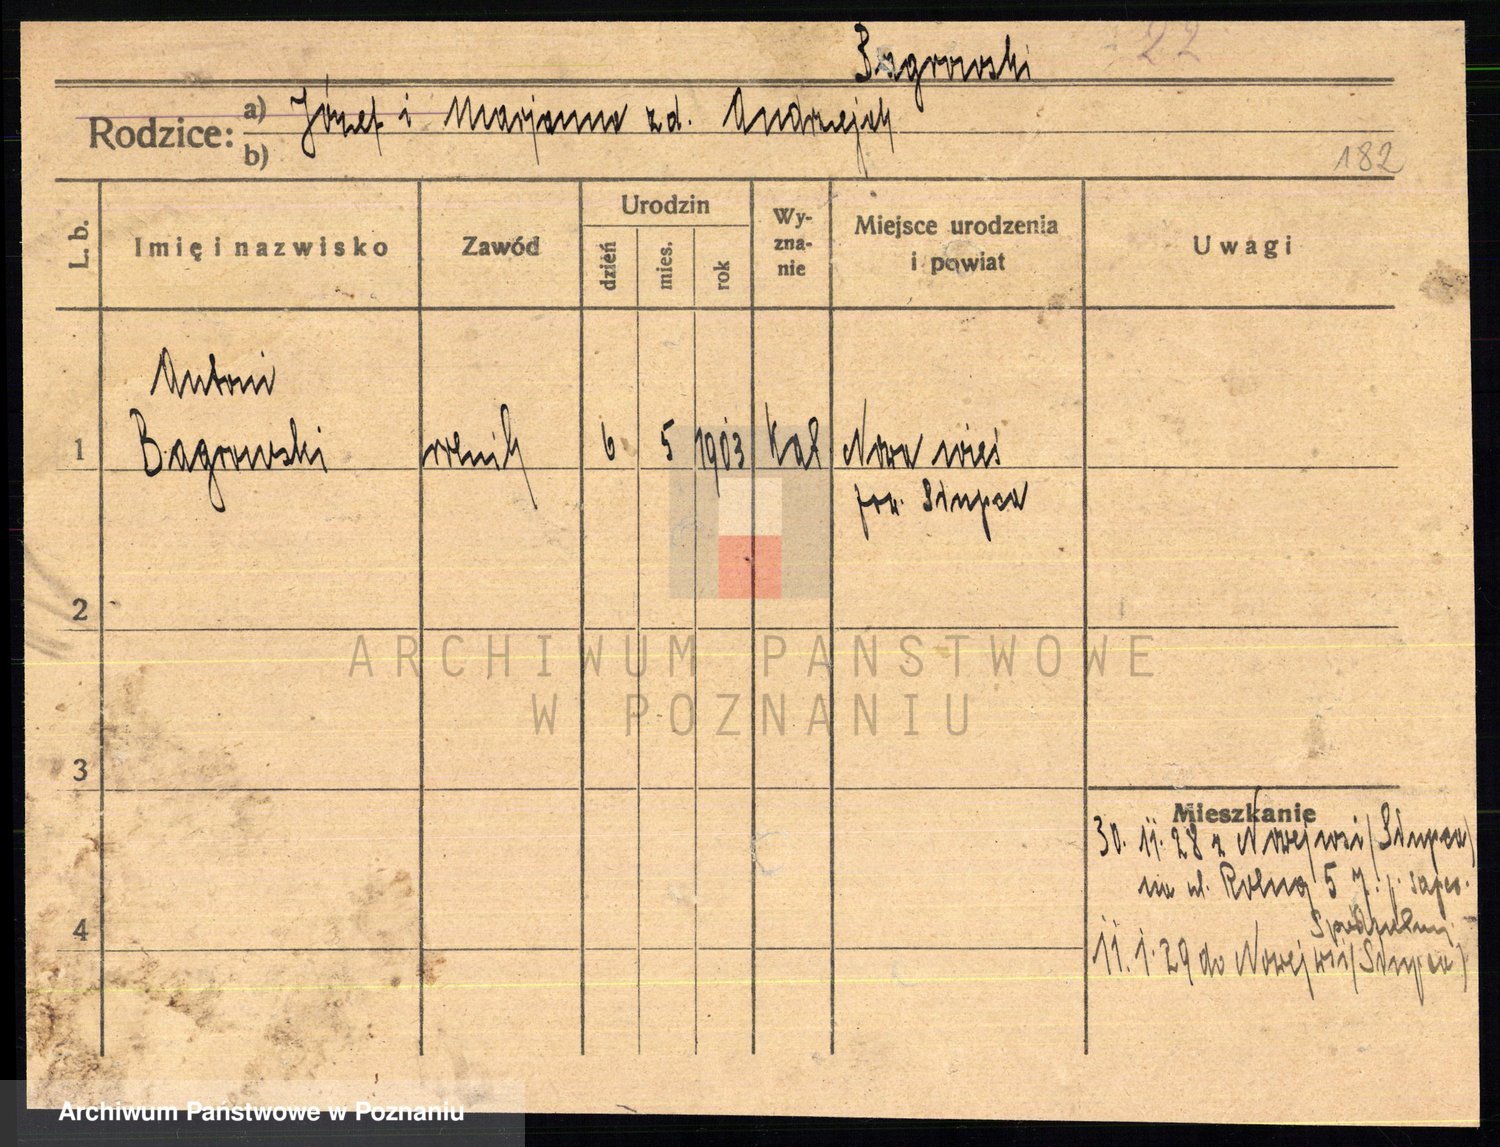 22
Bagrowski
Rodzice: a) Józef i Marjanna zd. Andrzejak
b)
182
L. b.
Imię i nazwisko
Zawód
Urodzin
dzień
mies.
rok
Wy-
zna-
nie
Miejsce urodzenia
i powiat
Uwagi
Antoni
1 Bagrowski rolnik 6 5 1903 Kat Nowa wieś
pow. Słupca
2
ARCHIWUM PAŃSTWOWE
W POZNANIU
3
Mieszkanie
30. 11. 28 z Nowejwsi (Słupca)
na ul. Rolna 5
4
11. 1. 29 do Nowej wsi (Słupca)
Archiwum Państwowe w Poznaniu